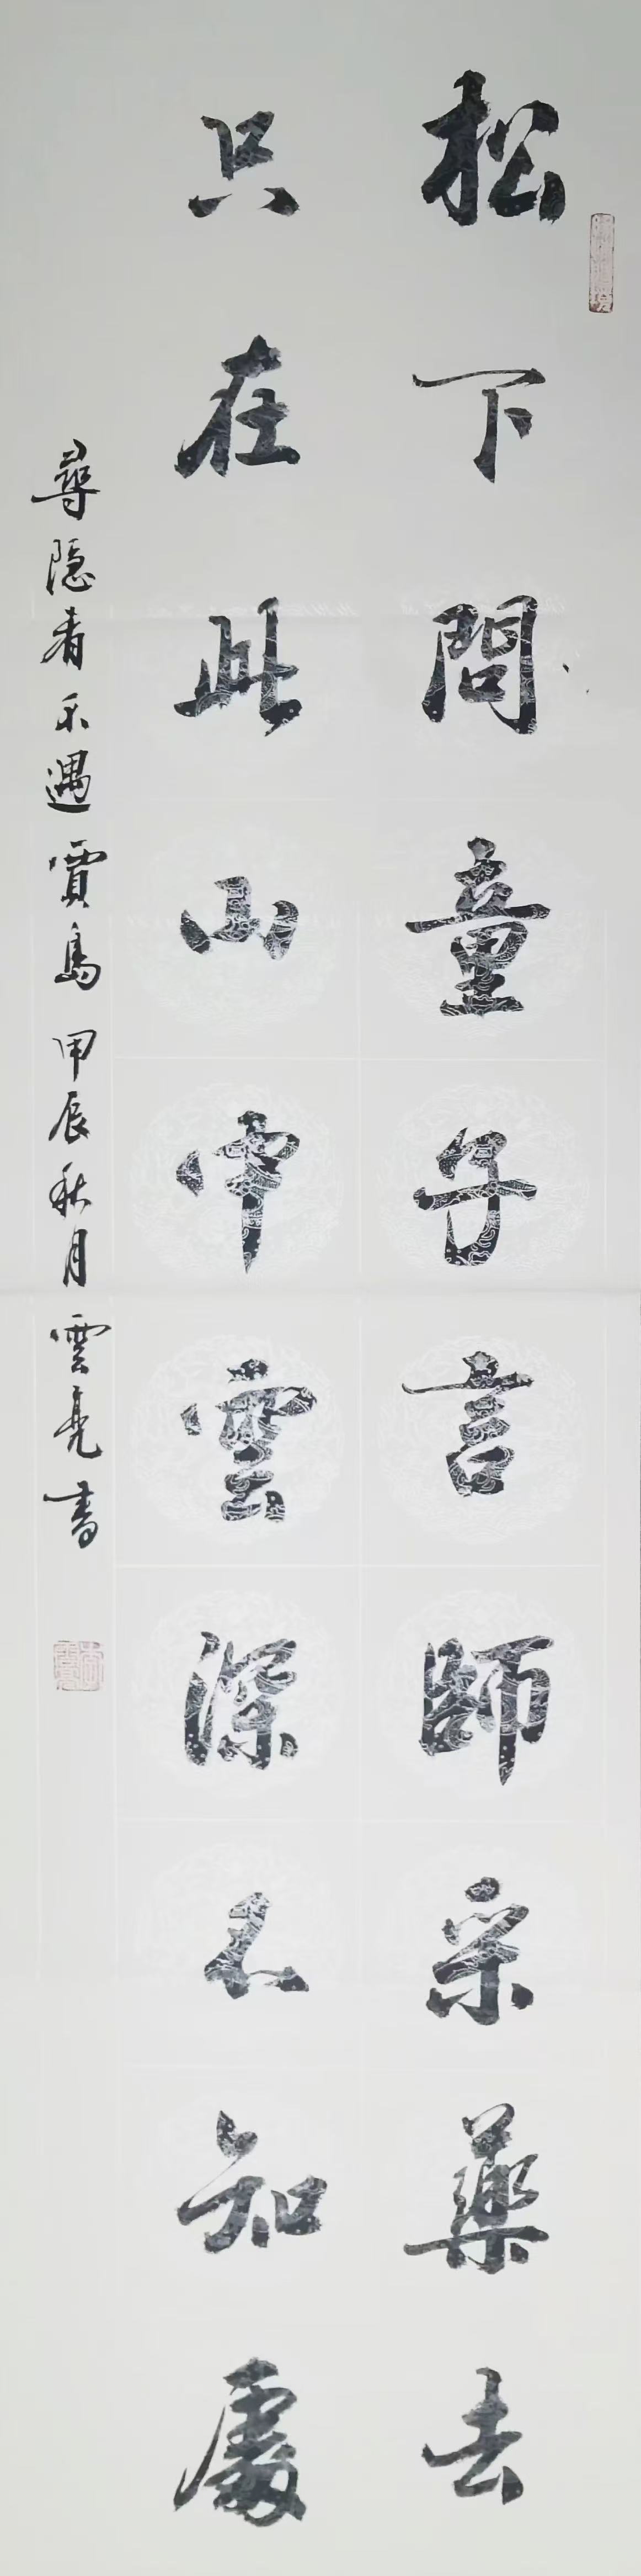 松下問童子言師采藥去
只在此山中雲深不知處
尋隐者不遇賈島甲辰秋月雲亮書